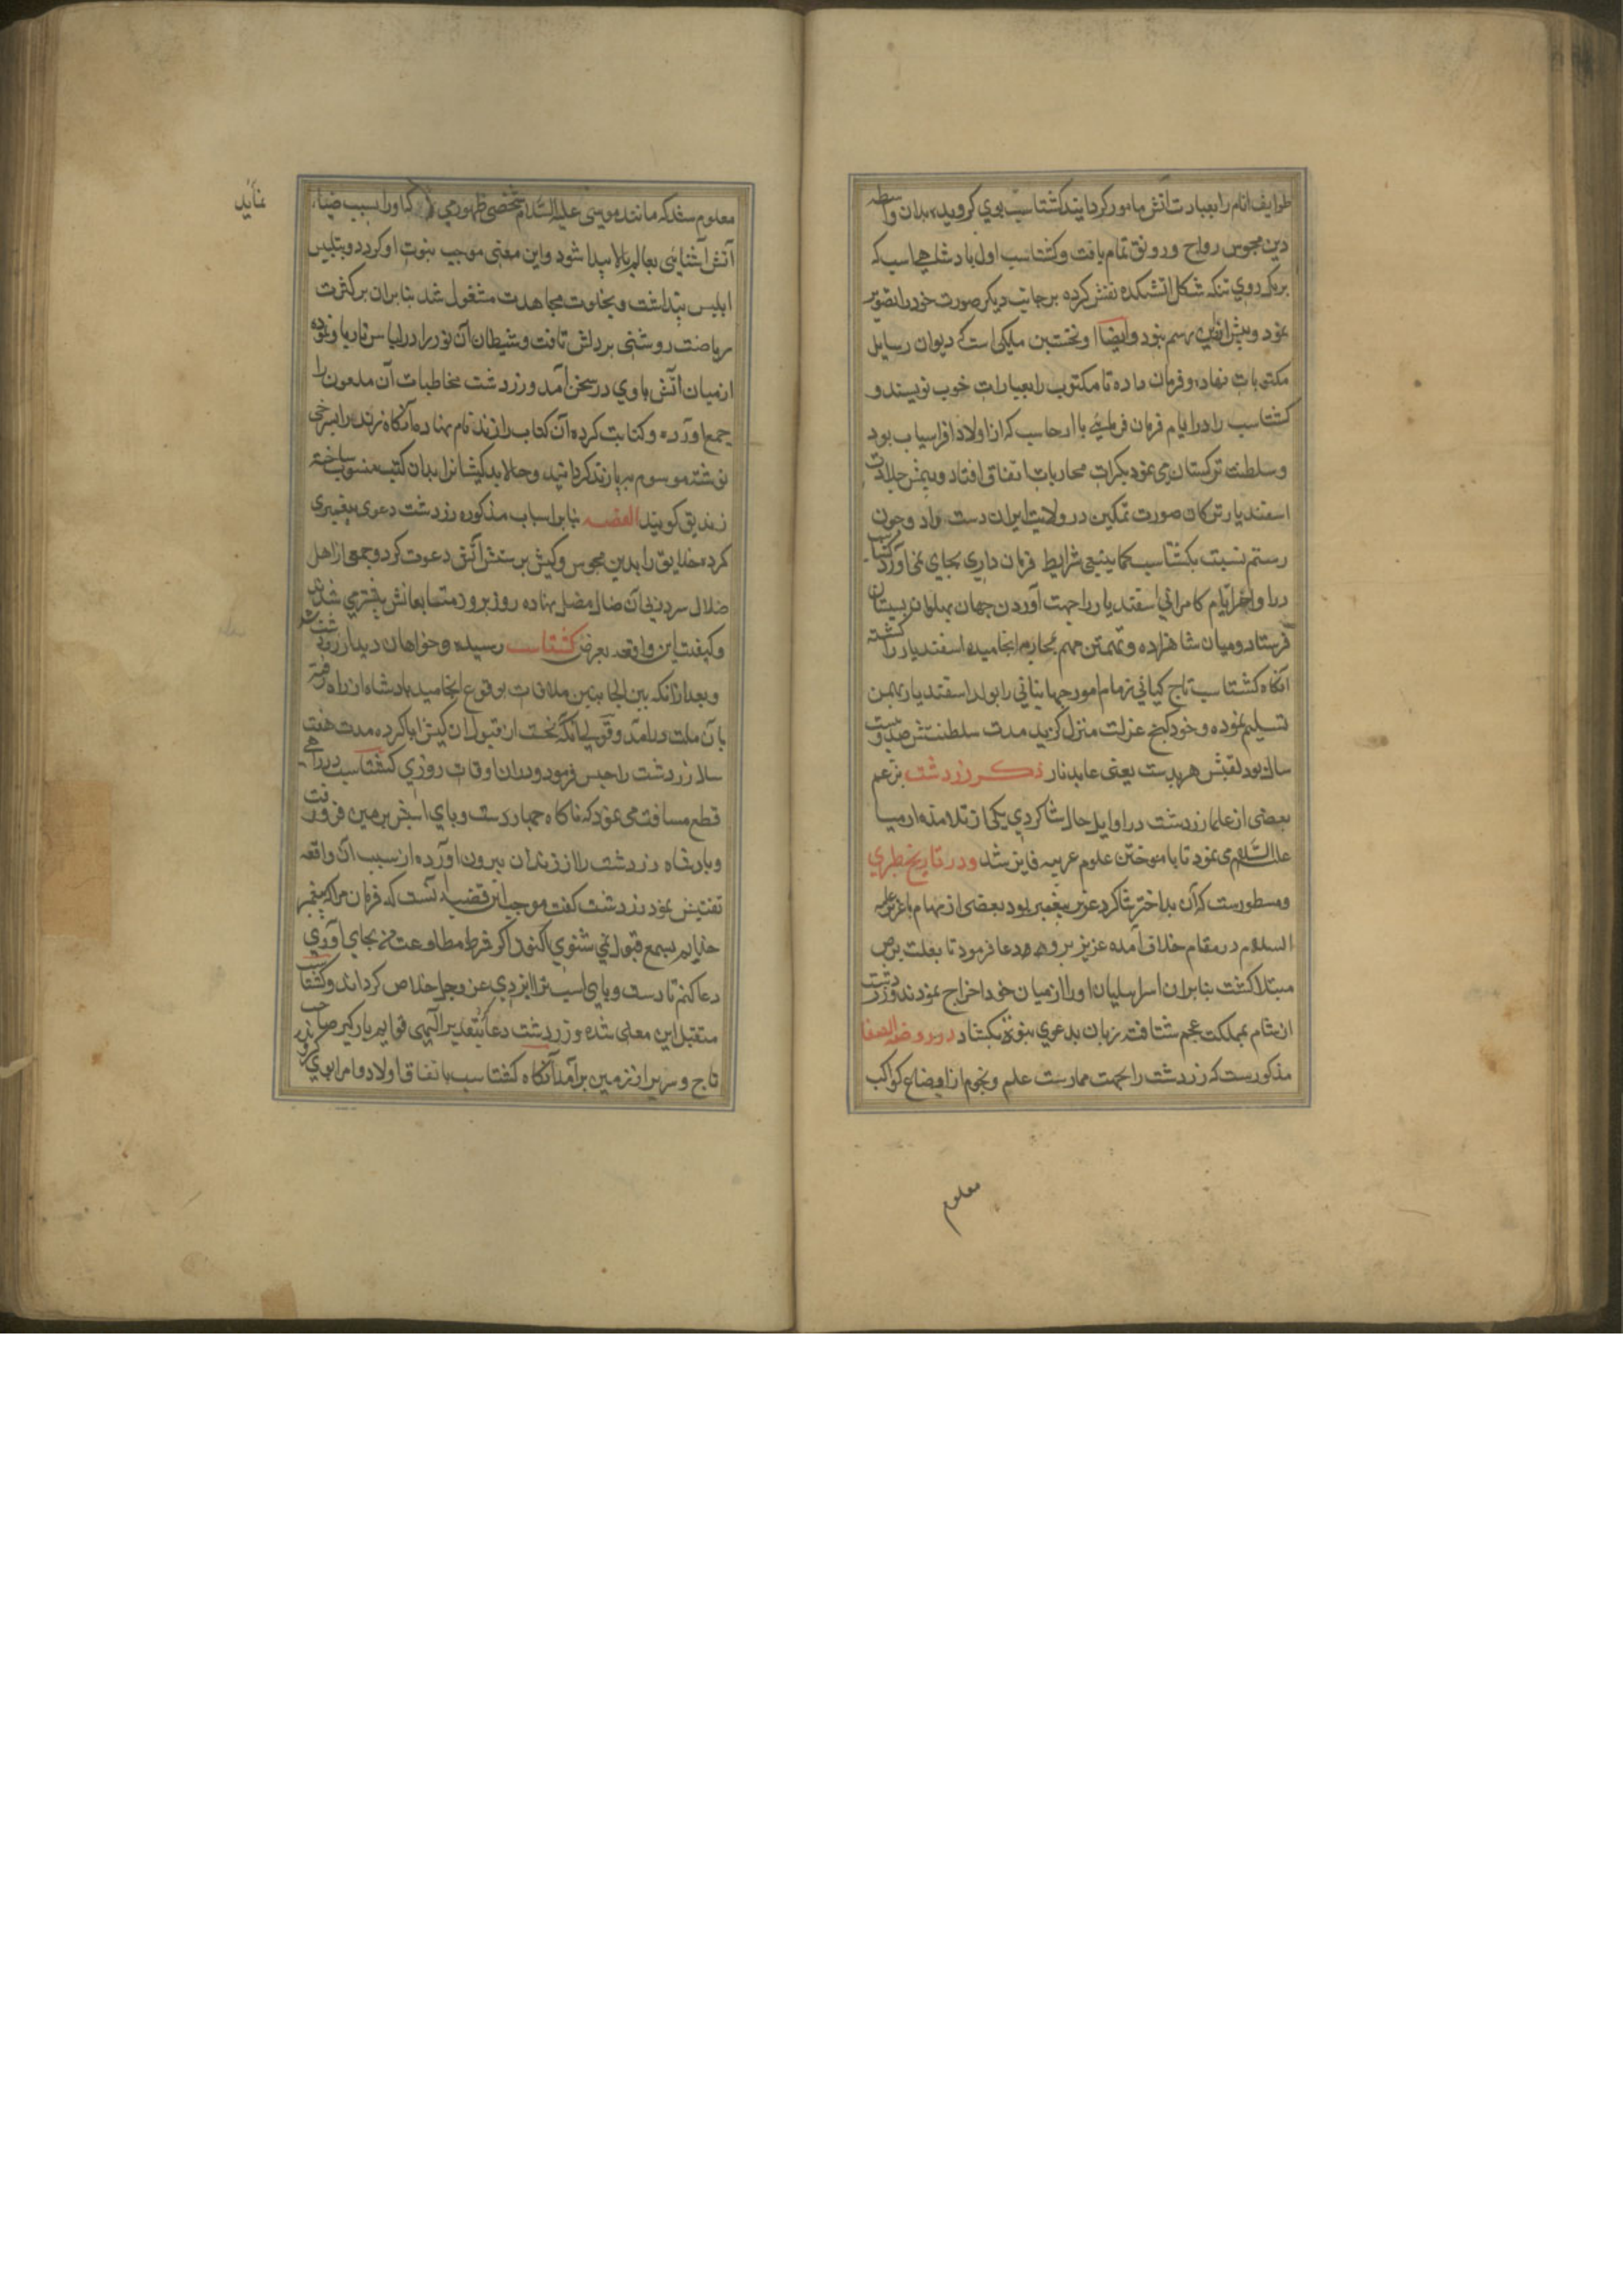 طوایف انام را بعبادت آتش مامور کردانید کشتاسب بوی کرویده بدان واسطه
دین مجوس رواج و رونق تمام یافت و کشتاسب اول پادشاهیست که
بر یک روی تنکه شکل آتشکده نقش کرده بر جانب دیکر صورت خود را تصویر
نمود و پیش ازین رسم نبود و ایضا او نخستین ملیکی است که دیوان رسایل
مکتوبات نهاد و فرمان داده تا مکتوب را بعبارات خوب نویسند و
کشتاسب را در ایام فرمان فرمایی با ارجاسب که از اولاد افراسیاب بود
و سلطنت ترکستان می نمود بکرات محاربات اتفاق افتاد و بیمن جلادت
اسفندیار ترکان صورت تمکین در ولایت ایران دست داد و چون
رستم نسبت بکشتاسب کما ینبغی شرایط فرمان داری بجای نمی آورد کشتاسب
در اواخر ایام کامرانی اسفندیار را جهت آوردن جهان پهلوان بسیستان
فرستاد و میان شاهزاده و تهمتن مهم بمحاربه انجامیده اسفندیار کشته را
آنکاه کشتاسب تاج کیانی زمام امور جهانبانی را بولد اسفندیار بهمن
تسلیم نموده و خود کنج عزلت منزل کزید مدت سلطنتش صد و بیست
سال بود لقبش هربدست یعنی عابد نار ذکر زردشت بزعم
بعضی از علما زردشت در اوایل حال شاکردی یکی از تلامذه ارمیا
علیه السلام می نمود تا بآموختن علوم عربیه فایز شد و در تاریخ طبری
مسطورست که آن بداختر شاکرد عزیر پیغمبر بود بعضی از مهام با عزیر علیه
السلام در مقام خلاف آمده عزیز برو دعا فرمود تا بعلت برص
مبتلا کشت بنابران اسراییلیان او را از میان خود اخراج نمودند و زردشت
از شام بمملکت عجم شتافته زبان بدعوی نبوة بکشاد در روضة الصفا
مذکورست که زردشت را بجهت ممارست علم و نجوم از اوضاع کواکب
معلوم
معلوم شد که مانند موسی علیه السلام شخصی ظهور می کند که او را بسبب ضیاء
آتش آشنایی بعالم بالا پیدا شود و این معنی موجب نبوت او کردد و بتلبیس
ابلیس پنداشت و بخلوت مجاهدت مشغول شد بنابران بر کثرت
ریاضت روشنی بر دلش تافت و شیطان آن نور را در لباس نار باو نموده
از میان آتش با وی در سخن آمد و زردشت مخاطبات آن ملعون را
جمع آورده و کتابت کرده آن کتاب را زند نام نهاده آنکاه زند را شرحی
نوشته موسوم به پازند کردانید و حالا بدکیشانرا بدان کتب منسوب ساخته
زندیق کویند القصه بنابر اسباب مذکوره زردشت دعوی پیغمبری
کرده خلایق را بدین مجوس و کیش پرستش آتش دعوت کرد و جمعی از اهل
ضلال سر در پی آن ضال مضل نهاده روز بروز متابعانش بیشتر می شدند
و کیفیت این واقعه بعرض کشتاسب رسیده و خواهان دیدار زردشت شد
و بعد از آنکه بین الجانبین ملاقات بوقوع انجامید پادشاه از راه رفته
بآن ملت درآمد و قولی آنکه نخست از قبول آن کیش ابا کرده مدت هفت
سال زردشت را حبس فرمود و در آن اوقات روزی کشتاسب در راهی
قطع مسافت می نمود که ناکاه چهار دست و پای اسبش بزمین فرو رفت
و پادشاه زردشت را از زندان بیرون آورده از سبب آن واقعه
تفتیش نمود زردشت کفت موجب این قضیه آنست که فرمان مرا که پیغمبر
خدایم بسمع قبول نمی شنوی اکنون اکر فرط مطاوعت من بجای آوری
دعا کنم تا دست و پای اسب ترا ایزد عز و جل خلاص کرداند و کشتاسب
متقبل این معنی شده و زردشت دعا بتقدیر الهی قوایم بارکیر صاحب
تاج و سریر از زمین برآمد آنکاه کشتاسب باتفاق اولاد و امرا بوی کرویدند
نمایید